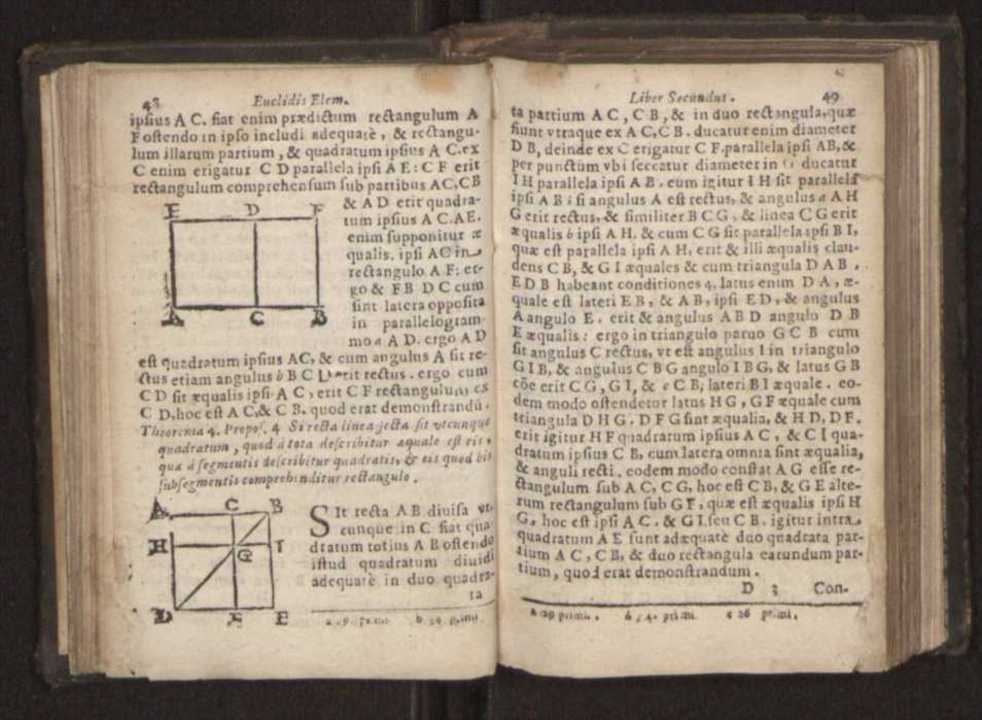 48 Euclidis Elem.
ipsius A C. fiat enim prædictum rectangulum A
F ostendo in ipso includi adequatè, & rectangu-
lum illarum partium, & quadratum ipsius A C. ex
C enim erigatur C D parallela ipsi A E: C F erit
rectangulum comprehensum sub partibus AC, CB
& A D erit quadra-
tum ipsius A C. AE.
enim supponitur æ
qualis. ipsi AC in
rectangulo A F: er-
go & F B D C cum
sint latera opposita
in parallelogram-
mo a A D. ergo A D
E D F
A C B
est quadratum ipsius AC, & cum angulus A sit re-
ctus etiam angulus b B C D erit rectus. ergo cum
C D sit æqualis ipsi A C, erit C F rectangulum ex
C D, hoc est A C, & C B. quod erat demonstrandũ.
Theorema 4. Propos. 4 Si recta linea secta sit vtcunque
quadratum, quod à tota describitur æquale est eis,
quæ à segmentis describitur quadratis, & eis quod bis
subsegmentis comprehenditur rectangulo.
A C B
H G I
D F E
SIt recta A B diuisa vt-
cunque in C fiat qua-
dratum totius A B ostendo
istud quadratum diuidi
adequatè in duo quadra-
ta
a 29. primi. b 34 primi
Liber Secundus. 49
ta partium A C, C B, & in duo rectangula, quæ
fiunt vtraque ex A C, C B. ducatur enim diameter
D B, deinde ex C erigatur C F. parallela ipsi AB, &
per punctum vbi seccatur diameter in G ducatur
I H parallela ipsi A B. cum igitur I H sit parallela
ipsi A B: si angulus A est rectus, & angulus a A H
G erit rectus, & similiter B C G, & linea C G erit
æqualis b ipsi A H, & cum C G sit parallela ipsi B I,
quæ est parallela ipsi A H, erit & illi æqualis clau-
dens C B, & G I æquales & cum triangula D A B,
E D B habeant conditiones 4. latus enim D A, æ-
quale est lateri E B, & A B, ipsi E D, & angulus
A angulo E. erit & angulus A B D angulo D B
E æqualis: ergo in triangulo paruo G C B cum
sit angulus C rectus, vt est angulus I in triangulo
G I B, & angulus C B G angulo I B G, & latus G B
cõe erit C G, G I, & c C B, lateri B I æquale. eo-
dem modo ostendetur latus H G, G F æquale cum
triangula D H G, D F G sint æqualia, & H D, D F.
erit igitur H F quadratum ipsius A C, & C I qua-
dratum ipsius C B, cum latera omnia sint æqualia,
& anguli recti. eodem modo constat A G esse re-
ctangulum sub A C, C G, hoc est C B, & G E alte-
rum rectangulum sub G F, quæ est æqualis ipsi H
G, hoc est ipsi A C. & G I. seu C B. igitur intra
quadratum A E sunt adæquatè duo quadrata par-
tium A C, C B, & duo rectangula earundum par-
tium, quod erat demonstrandum.
D 3 Con-
a 29 primi. b 34. primi. c 26 primi.